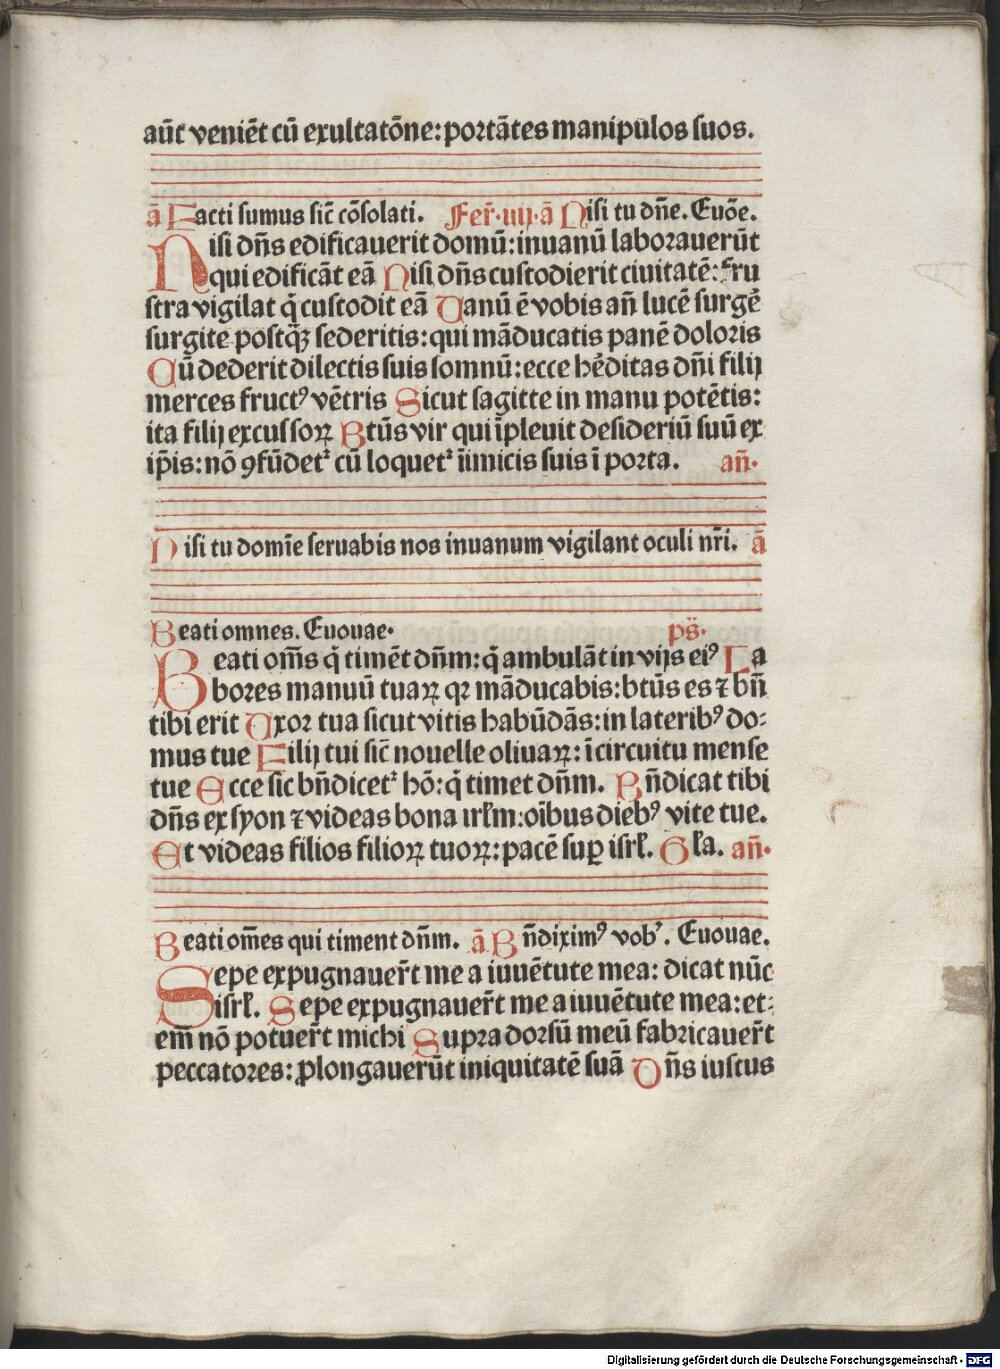 aūt veniēt cū exultatōne: portātes manipulos suos.
ā Facti sumus sic̄ cōsolati. Fer̄·iiij·ā Nisi tu dn̄e. Euōe.
Nisi dn̄s edificauerit domū: inuanū laborauerūt
qui edificāt eā Nisi dn̄s custodierit ciuitatē: fru
stra vigilat q̄ custodit eā Vanū ē vobis an̄ lucē surgē
surgite postq̄ꝫ sederitis: qui māducatis panē doloris
Cū dederit dilectis suis somnū: ecce hēditas dn̄i filij
merces fructꝰ vētris Sicut sagitte in manu potētis:
ita filij excussoꝝ Btūs vir qui īpleuit desideriū suū ex
ip̄is: nō ꝯfūdetᷣ cū loquetᷣ īimicis suis ī porta. an̄·
Nisi tu domīe seruabis nos inuanum vigilant oculi nr̄i. ā
Beati omnes. Euouae· ps̄·
Beati om̄s q̄ timēt dn̄m: q̄ ambulāt in vijs eiꝰ La
bores manuū tuaꝝ qꝛ māducabis: btūs es ⁊ bn̄
tibi erit Vxor tua sicut vitis habūdās: in lateribꝰ do⸗
mus tue Filij tui sic̄ nouelle oliuaꝝ: ī circuitu mense
tue Ecce sic bn̄dicetᷣ hō: q̄ timet dn̄m. Bn̄dicat tibi
dn̄s ex syon ⁊ videas bona irłm: oībus diebꝰ vite tue.
Et videas filios filioꝝ tuoꝝ: pacē suꝑ isrł. Gła. an̄·
Beati om̄es qui timent dn̄m. ā Bn̄diximꝰ vobᷣ. Euouae.
Sepe expugnauer̄t me a iuuētute mea: dicat nūc
isrł. Sepe expugnauer̄t me a iuuētute mea: et⸗
em̄ nō potuer̄t michi Supra dorsū meū fabricauer̄t
peccatores: ꝓlongauerūt iniquitatē suā Dn̄s iustus
Digitalisierung gefördert durch die Deutsche Forschungsgemeinschaft - DFG